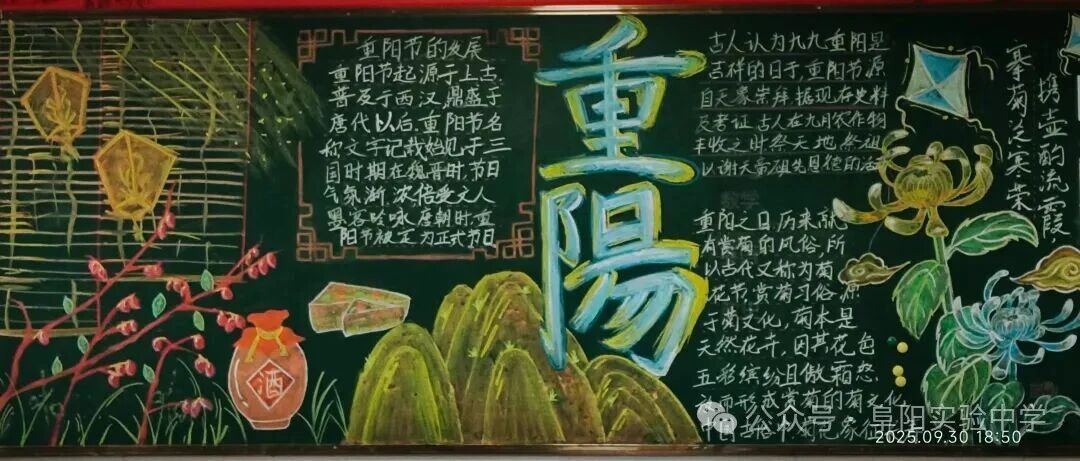 重阳节的发展
重阳节起源于上古,
普及于西汉,鼎盛于
唐代以后.重阳节名
称文字记载始见于三
国时期在魏晋时,节日
气氛渐浓倍受文人
墨客吟咏.唐朝时,重
阳节被定为正式节日
重陽
古人认为九九重阳是
吉祥的日子,重阳节源
自天象崇拜,据现存史料
及考证古人在九月农作物
丰收之时祭天地祭祖
以谢天帝祖先恩德的活
重阳之日,历来就
有赏菊的风俗,所
以古代又称为菊
花节.赏菊习俗源
于菊文化,菊本是
天然花卉,因其花色
五彩缤纷且傲霜怒
而形成赏菊的菊文化
古
携壶酌流霞,
搴菊泛寒荣
酒
公众号 阜阳实验中学
2025.09.30 18:50